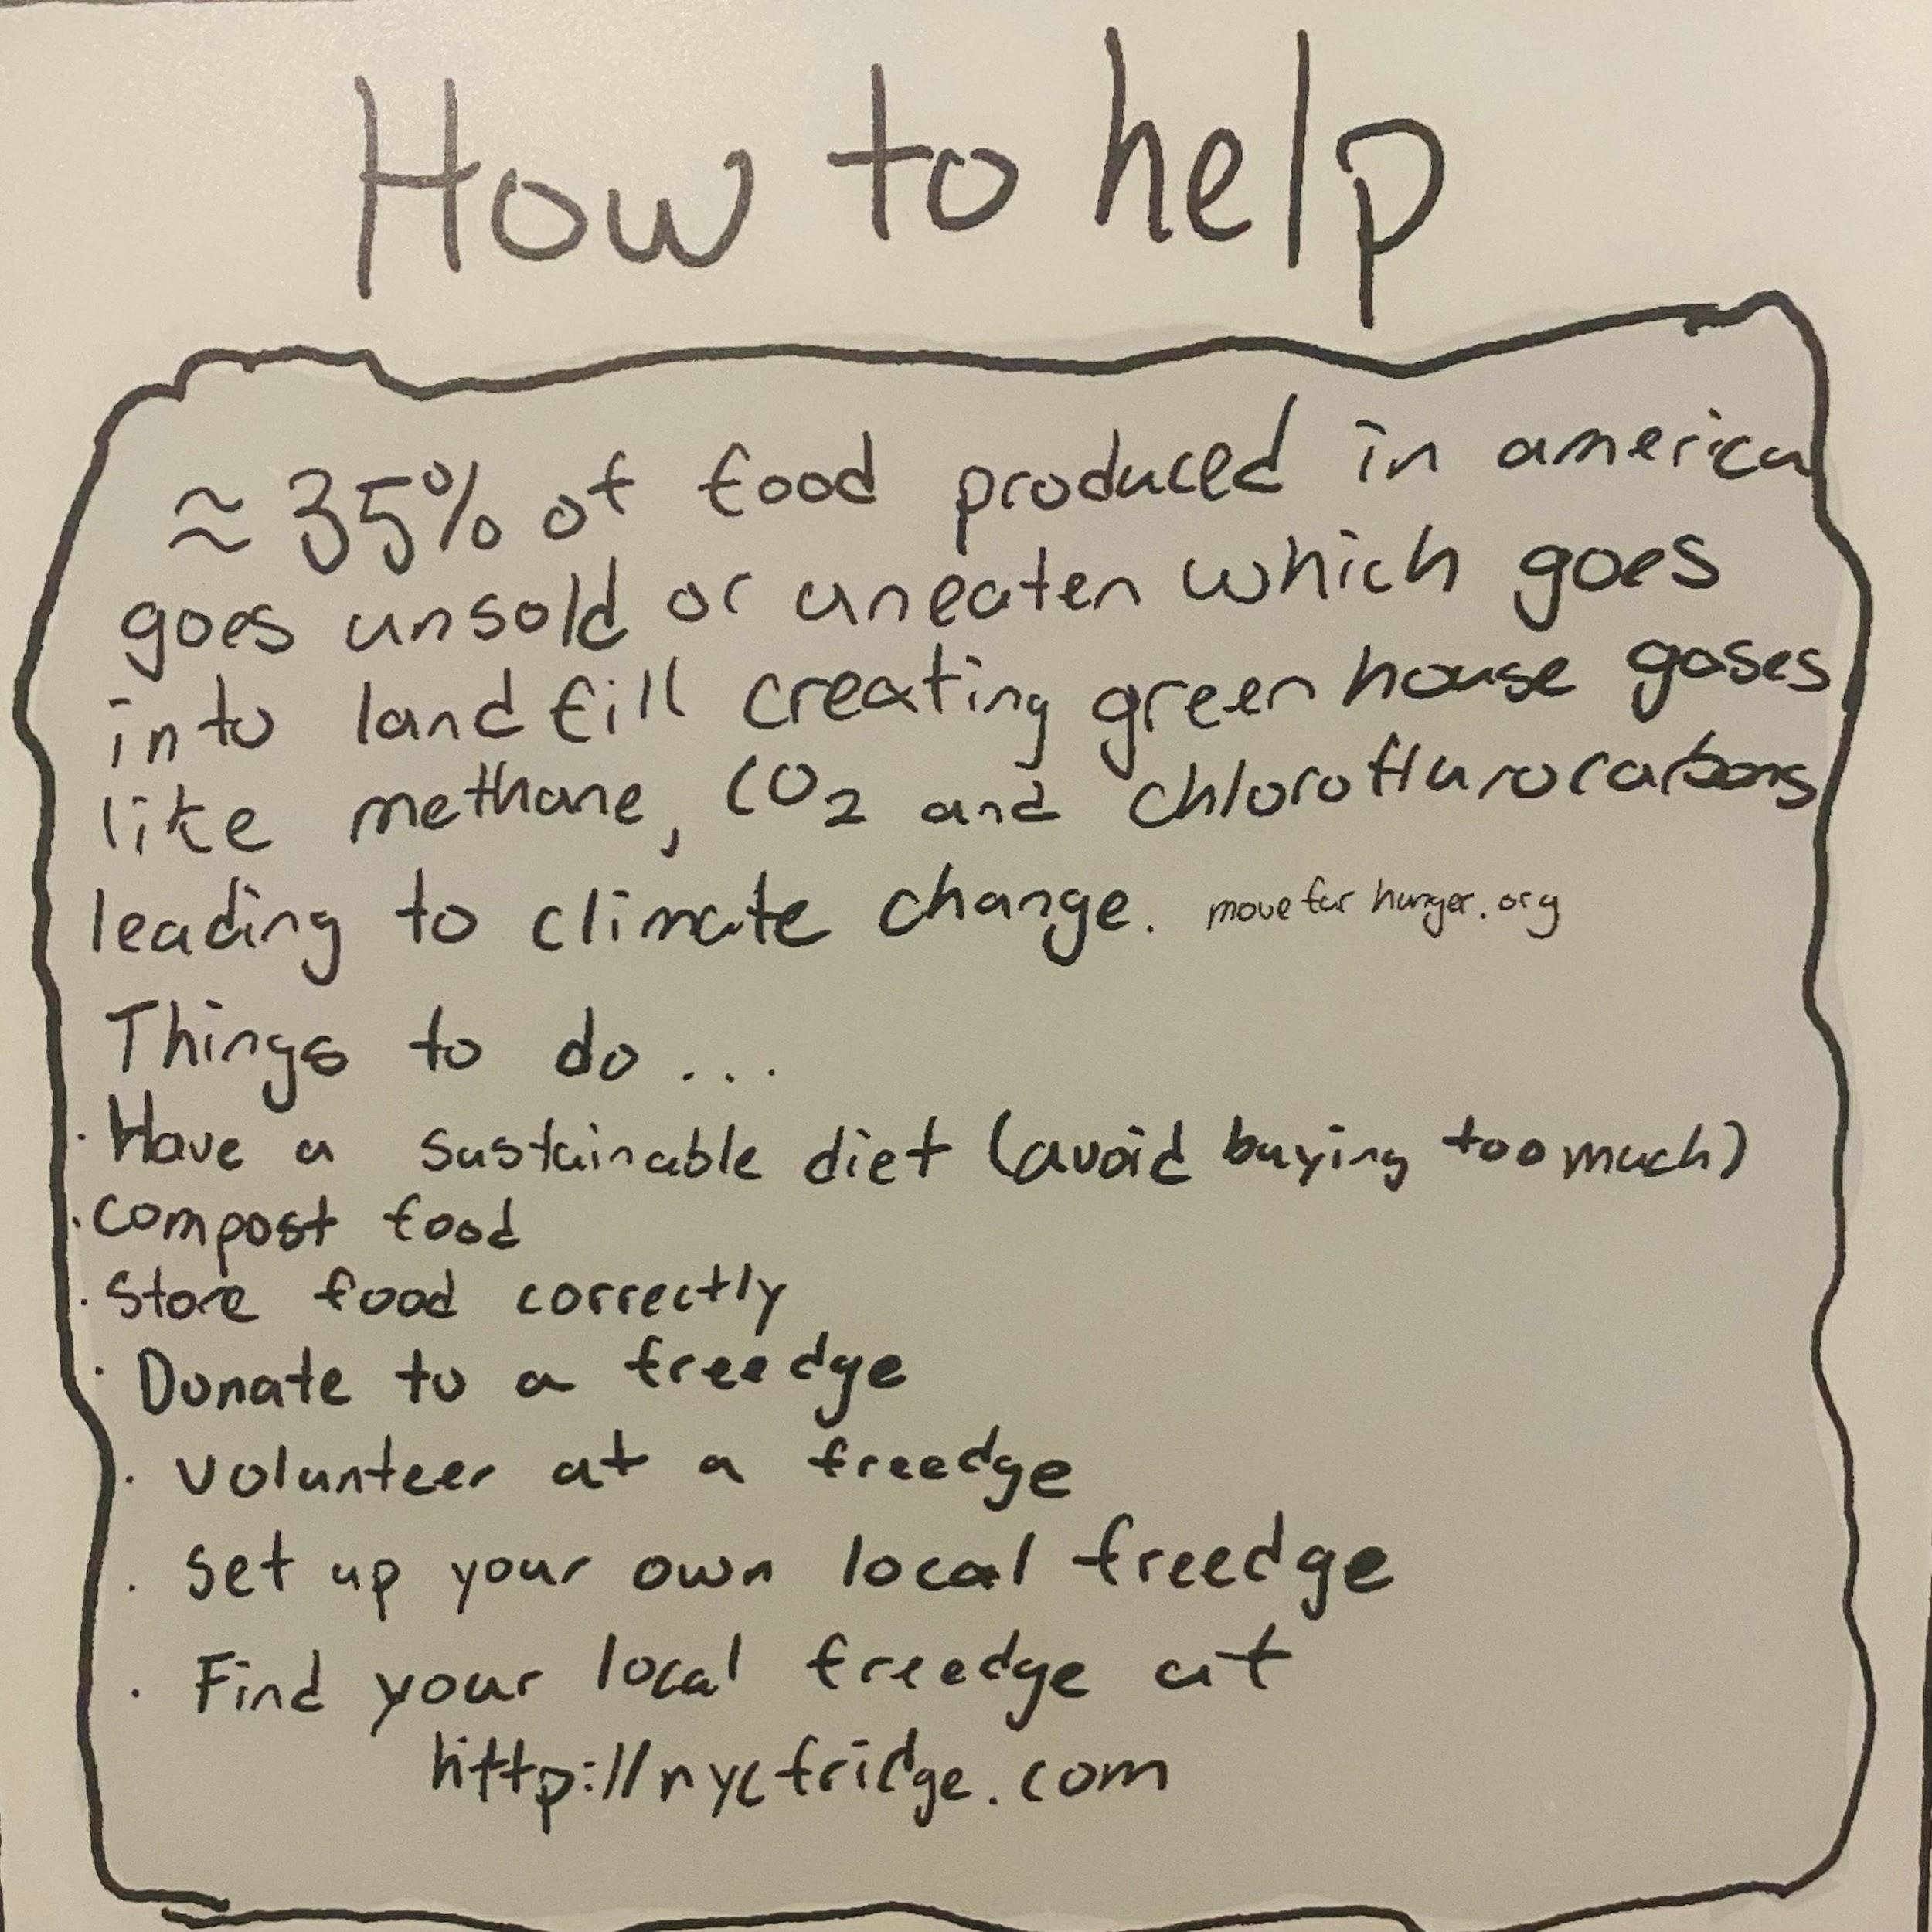 How to help
≈ 35% of food produced in america
goes unsold or uneaten which goes
into landfill creating green house gases
like methane, CO2 and chloroflurocarbons
leading to climate change. move for hunger.org
Things to do ...
· Have a sustainable diet (avoid buying too much)
· compost food
· Store food correctly
· Donate to a freedge
· volunteer at a freedge
· set up your own local freedge
· Find your local freedge at
http://nycfridge.com